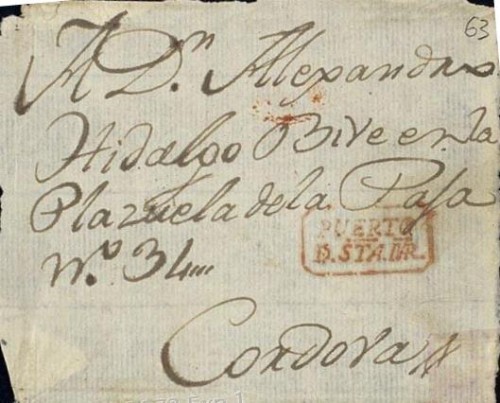 63
A Dn. Alexandro
Hidalgo Bive en la
Plazuela de la Paja
No. 34
PUERTO
D. STA. MAR.
Cordova